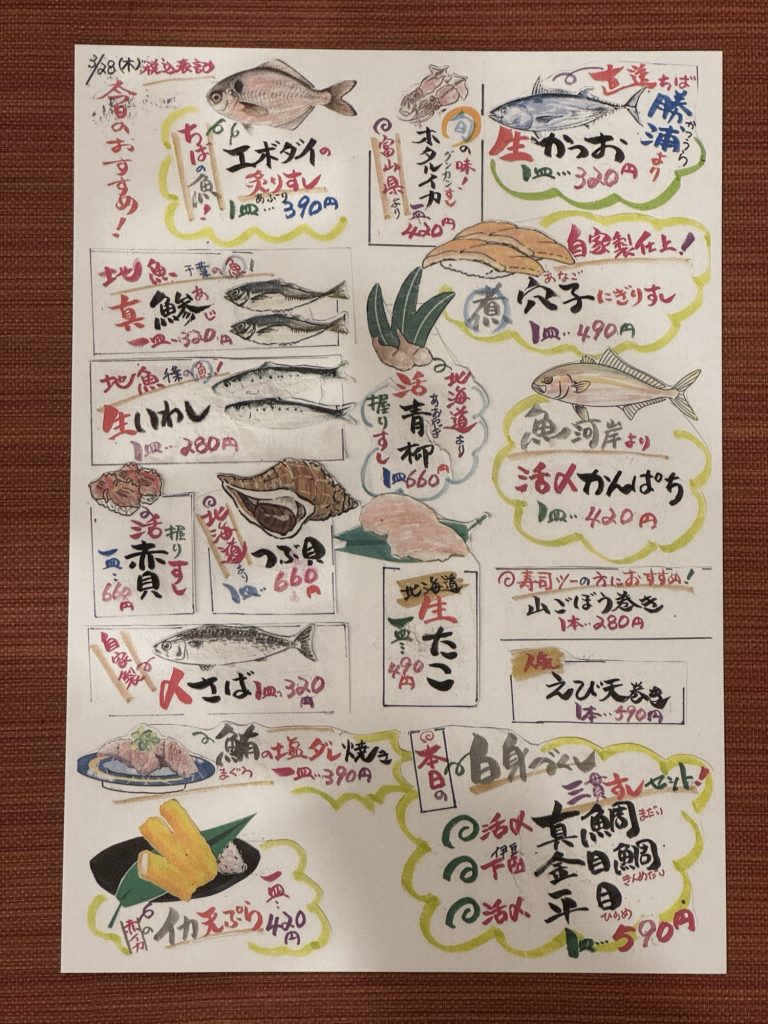 3/28(木)税込表記
今日のおすすめ!
ちばの魚!
エボダイの
炙りすし
あぶり
1皿…390円
旬の味!
グンカンすし
ホタルイカ
富山県より
一皿…420円
直送ちば
勝浦より
かつうら
生かつお
1皿…320円
地魚 千葉の魚!
真鯵
あじ
一皿…320円
自家製仕上!
煮穴子にぎりすし
あなご
1皿…490円
地魚 千葉の魚!
生いわし
1皿…280円
北海道より
活青柳
あおやぎ
握りすし
1皿660円
魚河岸より
活〆かんぱち
1皿…420円
活赤貝
握りすし
一皿…660円
北海道より
つぶ貝
1皿…660円
北海道
生たこ
一皿…490円
寿司ツーの方におすすめ!
山ごぼう巻き
1本…280円
自家製
〆さば 1皿…320円
人気
えび天巻き
1本…590円
鮪の塩ダレ焼き
まぐろ
一皿…390円
イカ天ぷら
一皿…420円
本日の
白身づくし
三貫すしセット!
活〆 真鯛
まだい
伊豆下田 金目鯛
きんめだい
活〆 平目
ひらめ
1皿…590円